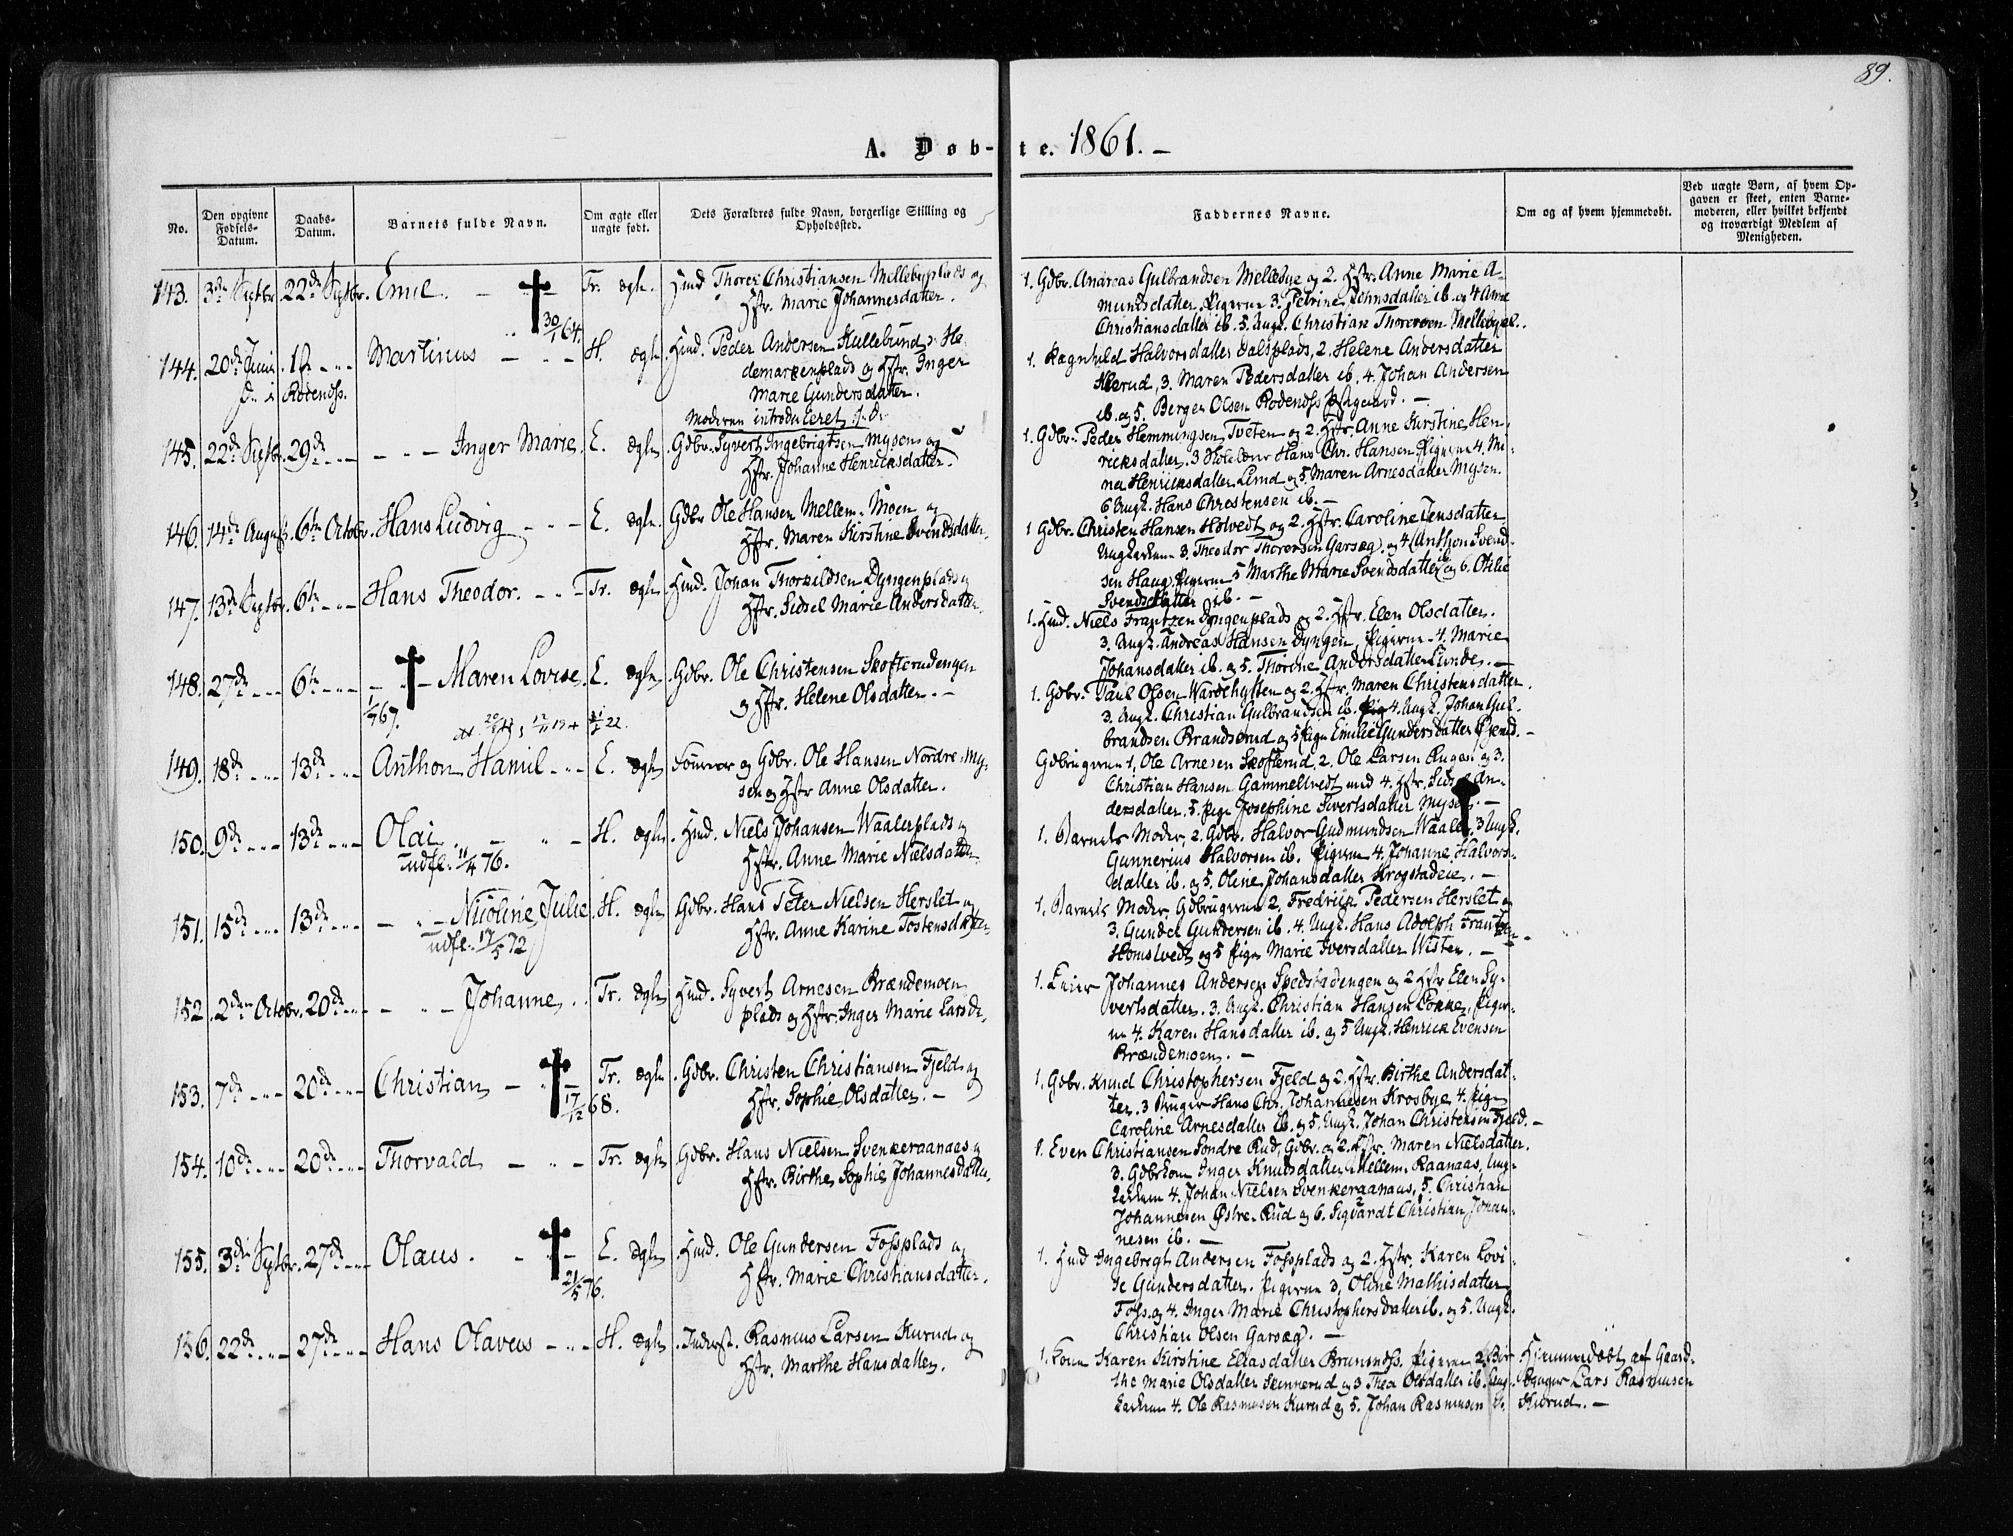 89.
A. Døb-te. 1861. -
No.
Den opgivne Fødsels-Datum.
Daabs-Datum.
Barnets fulde Navn.
Om ægte eller uægte født.
Dets Forældres fulde Navn, borgerlige Stilling og Opholdssted.
Faddernes Navne.
Om og af hvem hjemmedøbt.
Ved uægte Børn, af hvem Opgaven er skeet, enten Barnemoderen, eller hvilket bekjendt og troværdigt Medlem af Menigheden.
143. 3die Septbr. 22de Septbr. Emil. 30/1 64. Tr. ægte. Huusmd. Thorer Christiansen Mellebyplads og
Hstr. Marie Johannesdatter.
1. Gdbr. Andreas Gulbrandsen Mellebye og 2. Hstr. Anne Marie A-
mundsdatter, Pigerne 3. Petrine Johnsdatter ib. og 4 Anne
Christiansdatter ib. 5. Ungk. Christian Thorersen Mellebypl.
144. 20de Juni 1ste Rødenæss. Martinus H. ægte Huusmd. Peder Andersen Kullebund, He-
demarkenplads og Hstr. Inger
Marie Gundersdatter.
Moderen introduceret s. D.
1. Ragnhild Halvorsdatter Dalsplads, 2. Helene Andersdatter
3. Maren Pedersdatter ib. 4. Johan Andersen
ib. og 5. Berger Olsen Rødenæss Pstgaard. -
145. 22de Septbr. 29de Inger Marie E. ægte Gdbr. Syvert Ingebrigtsen Mysen og
Hstr. Johanne Henricksdatter.
1. Gdbr. Peder Hemmingsen Tveten og 2. Hstr. Anne Kirstine Hen-
ricksdatter. 3 Skolelærer Hans Chr. Hansen, Pigerne 4. Mi-
na Henricksdatter Lund og 5. Maren Arnesdatter Mysen.
6 Ungk. Hans Christensen ib. -
146. 14de August. 6te Octobr. Hans Ludvig E. ægte. Gdbr. Ole Hansen Mellem-Moen og
Hstr. Maren Kirstine Svendsdatter.
1 Gdbr. Christen Hansen Holvedt og 2. Hstr. Caroline Jensdatter
Ungkarlene 3. Theodor Thorersen Garsæg, og 4 Anthon Svend-
sen Haug, Pigerne 5 Marthe Marie Svendsdatter ib og 6. Otilie
Svendsdatter ib. -
147. 13de Septbr. 6te Hans Theodor. Tr. ægte Huusmd. Johan Thorkildsen Dyngenplads og
Hstr. Sidsel Marie Andersdatter.
1. Huusmd. Niels Frantzen Dyngenplads og 2. Hstr. Elen Olsdatter.
3. Ungk. Andreas Hansen Dyngen, Pigerne 4. Marie
Johansdatter ib. og 5. Thorine Andersdatter Lunde. -
148. 27de 6te Maren Lovise. 1/7 67. E. ægte Gdbr. Ole Christensen Skofterudengen
og Hstr. Helene Olsdatter. -
1. Gdbr. Paul Olsen Wardehytten og 2. Hstr. Maren Christensdatter.
3. Ungk. Christian Gulbrandsen ib. 4. Ungk. Johan Gul-
brandsen Brandsrud og 5 Pige Emilie Gundersdatter -
149. 18de 13de Anthon Hamil E. ægte og Gdbr. Ole Hansen Nordre-My-
sen og Hstr Anne Olsdatter.
Gdbrugerne 1, Ole Arnesen Skofterud, 2. Ole Larsen og 3.
Christian Hansen Gammeltvedt med 4. Hstr. Sidsel An-
dersdatter. 5. Pige Josephine Sivertsdatter Mysen. -
150. 9de 13de Olai udfl. 11/4 76. H. ægte Huusmd. Niels Johansen Waalerplads og
Hstr. Anne Marie Nielsdatter
1. Barnets Moder, 2. Gdbr. Halvor Gudmundsen Waaler. 3 Ungk.
Gunnerius Halvorsen ib. Pigerne 4. Johanne Halvors-
datter ib. og 5. Oline Johansdatter Krogstadeie. -
151. 15de 13de Nicoline Julie udfl. 17/5 72 H. ægte Gdbr. Hans Peter Nielsen Herslet og
Hstr. Anne Karine Tostensdatter
1. Barnets Moder, Gdbrugerne 2. Fredrick Pedersen Herslet og
3. Gunder Gundersen ib. 4. Ungk. Hans Adolph Frantzen
og 5 Pige Marie Iversdatter Wisten. -
152. 2den Octobr. 20de Johanne Tr. ægte Huusmd. Syvert Arnesen Brændemoen
plads og Hstr. Inger Marie Larsdr.
1. Eeier Johannes Andersen Spedstadengen og 2 Hstr Elen Sy-
vertsdatter. 3. Ungk. Christian Hansen Løkke, Piger-
ne 4. Karen Hansdatter ib. og 5 Ungk. Henrick Evensen
Brændemoen. -
153. 7de 20de Christian 17/12 68. Tr. ægte Gdbr. Christen Christiansen Fjeld og
Hstr. Sophie Olsdatter. -
1. Gdbr. Knud Christophersen Fjeld og 2. Hstr. Birthe Andersdat-
ter. 3 Bruger Hans Chr. Johannesen Krosbye 4. Pige
Caroline Arnesdatter ib. og 5. Ungk. Johan Christensen Fjeld. -
154. 10de 20de Thorvald Tr. ægte Gdbr. Hans Nielsen Svenkeraanaas og
Hstr. Birthe Sophie Johannesdatter.
1. Even Christiansen Søndre Rud, Gdbr. og 2. Hstr. Maren Nielsdatter.
3. Gdbrkone Inger Knudsdatter Mellem Raanaas, Ung-
karlene 4. Johan Nielsen Svenkeraanaas, 5. Christian
Johannesen Østre-Rud og 6. Sigvardt Christian Johan-
nesen ib. -
155. 3die Septbr. 27de Olaus. 21/5 76. E. ægte Huusmd. Ole Gundersen Fossplads og
Hstr. Marie Christiansdatter.
1. Huusmd Ingebregt Andersen Fossplads og 2. Hstr. Karen Lovi-
se Gundersdatter. Pigerne 3, Oline Mathisdatter
Foss. og 4. Inger Marie Christophersdatter ib. og 5. Ungk.
Christian Olsen Garsæg. -
156. 22de 27de Hans Olaves H. ægte Inderst. Rasmus Larsen Kurud og
Hstr. Marthe Hansdatter.
1. Kone Karen Kirstine Eliasdatter Pigerne 2. Bir-
the Marie Olsdatter Skinnerud og 3 Thea Olsdatter ib. Ung-
karlene 4. Ole Rasmusen Kurud og 5. Johan Rasmusen
Hjemmedøbt af Gaard-
bruger Lars Rasmusen
Kurud. -